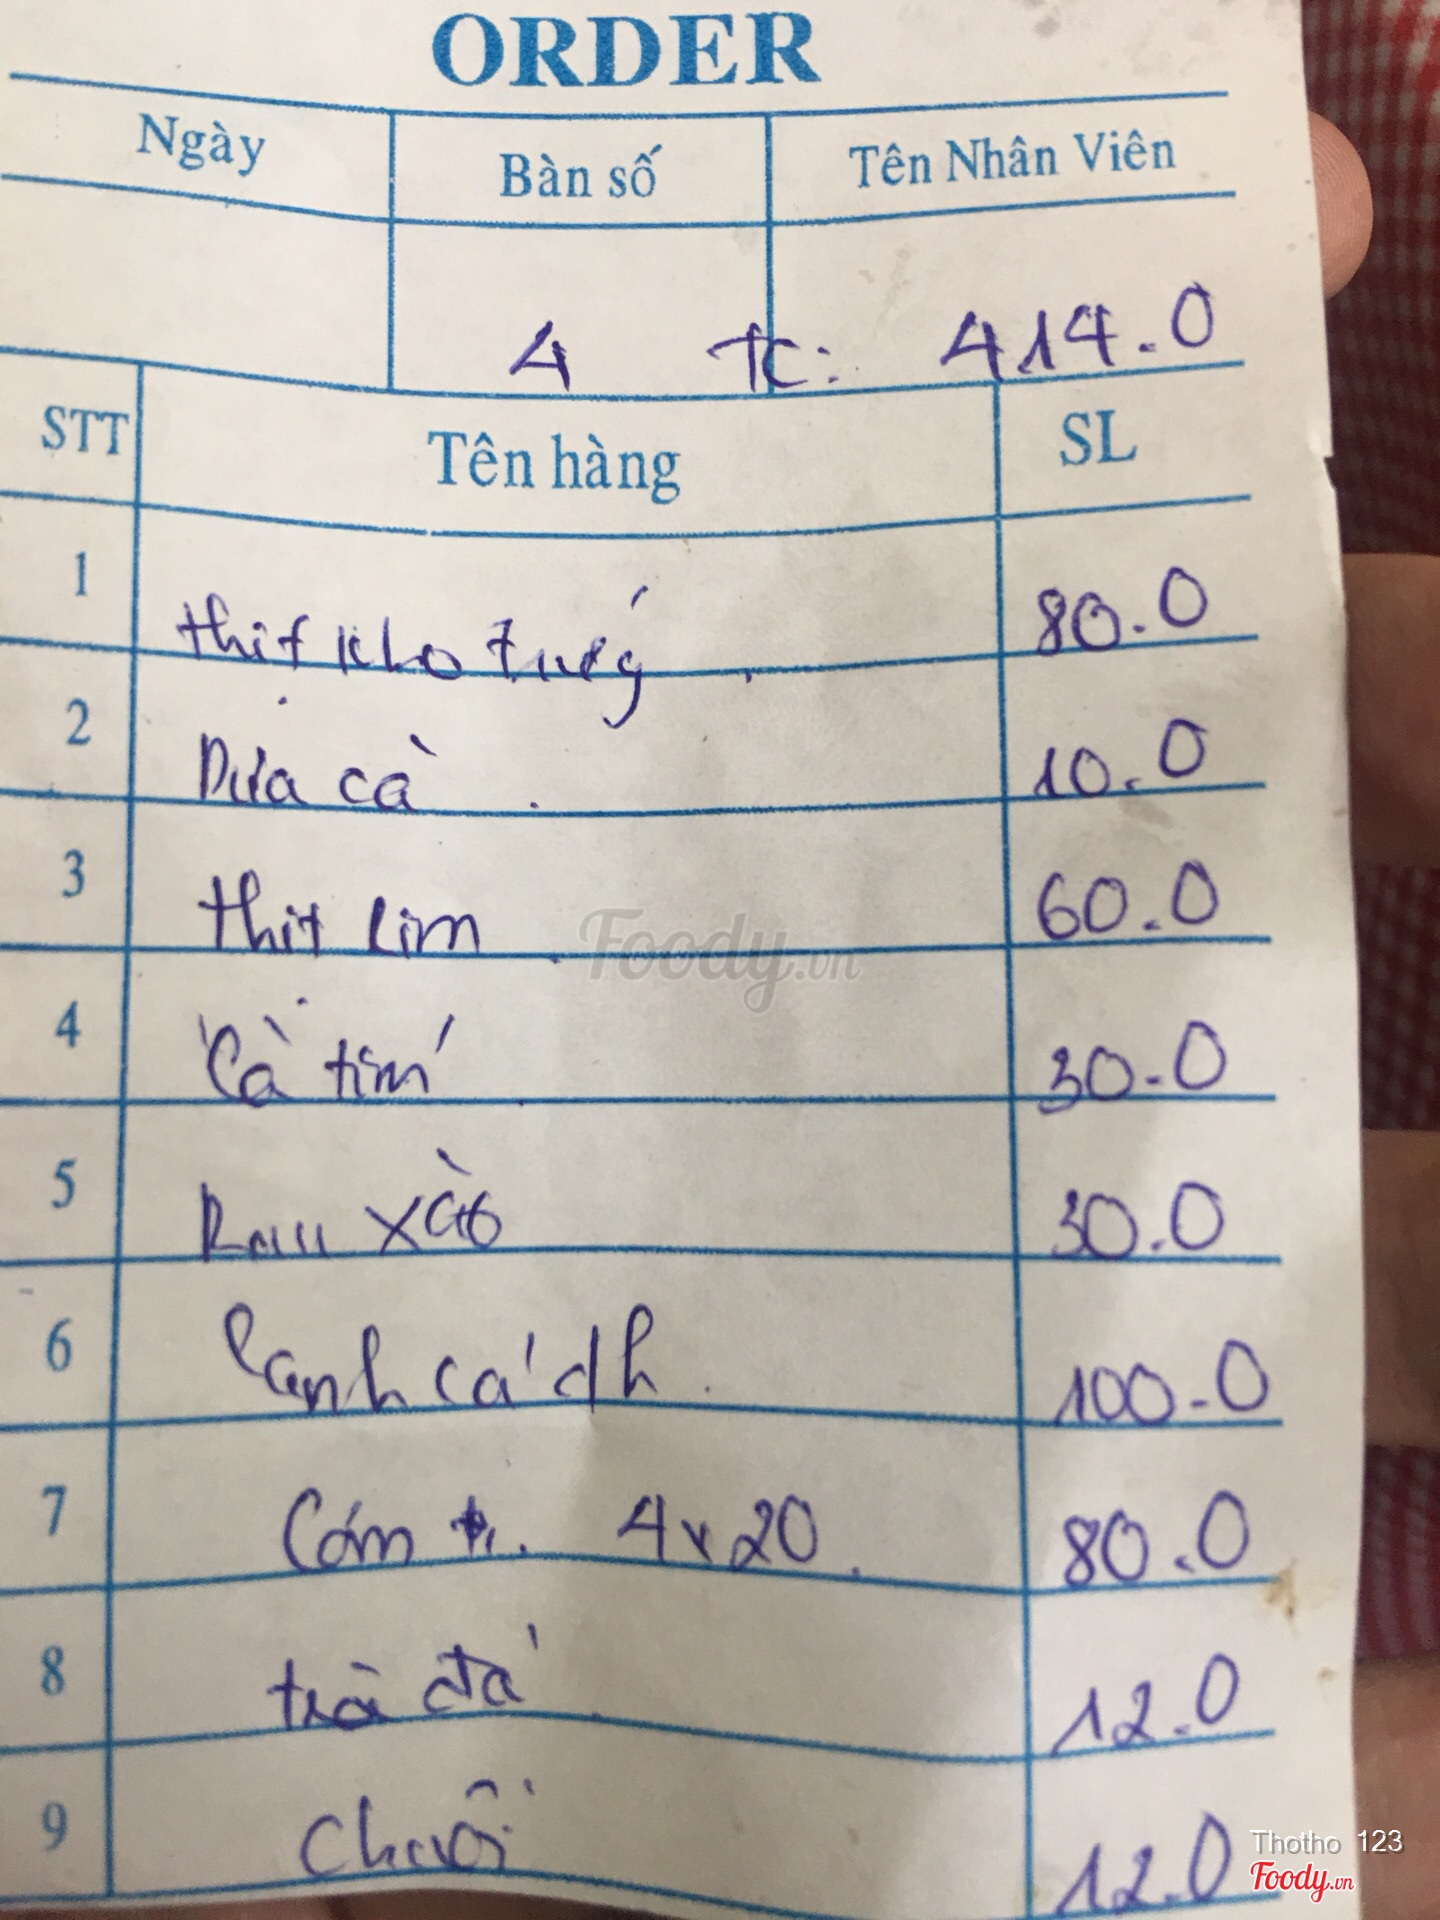 ORDER
Ngày Bàn số Tên Nhân Viên
4 TC: 414.0
STT Tên hàng SL
1 thịt kho tướg 80.0
2 Dưa cà 10.0
3 thịt rim 60.0
4 Cà tím 30.0
5 Rau xào 30.0
6 Canh cá dh 100.0
7 Cơm 4x20 80.0
8 trà đá 12.0
9 Chuối 12.0
Foody.vn
Thotho 123
Foody.vn